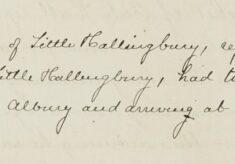 of Little Hallingbury, rep
ittle Hallingbury, had t
Albury and arriving at